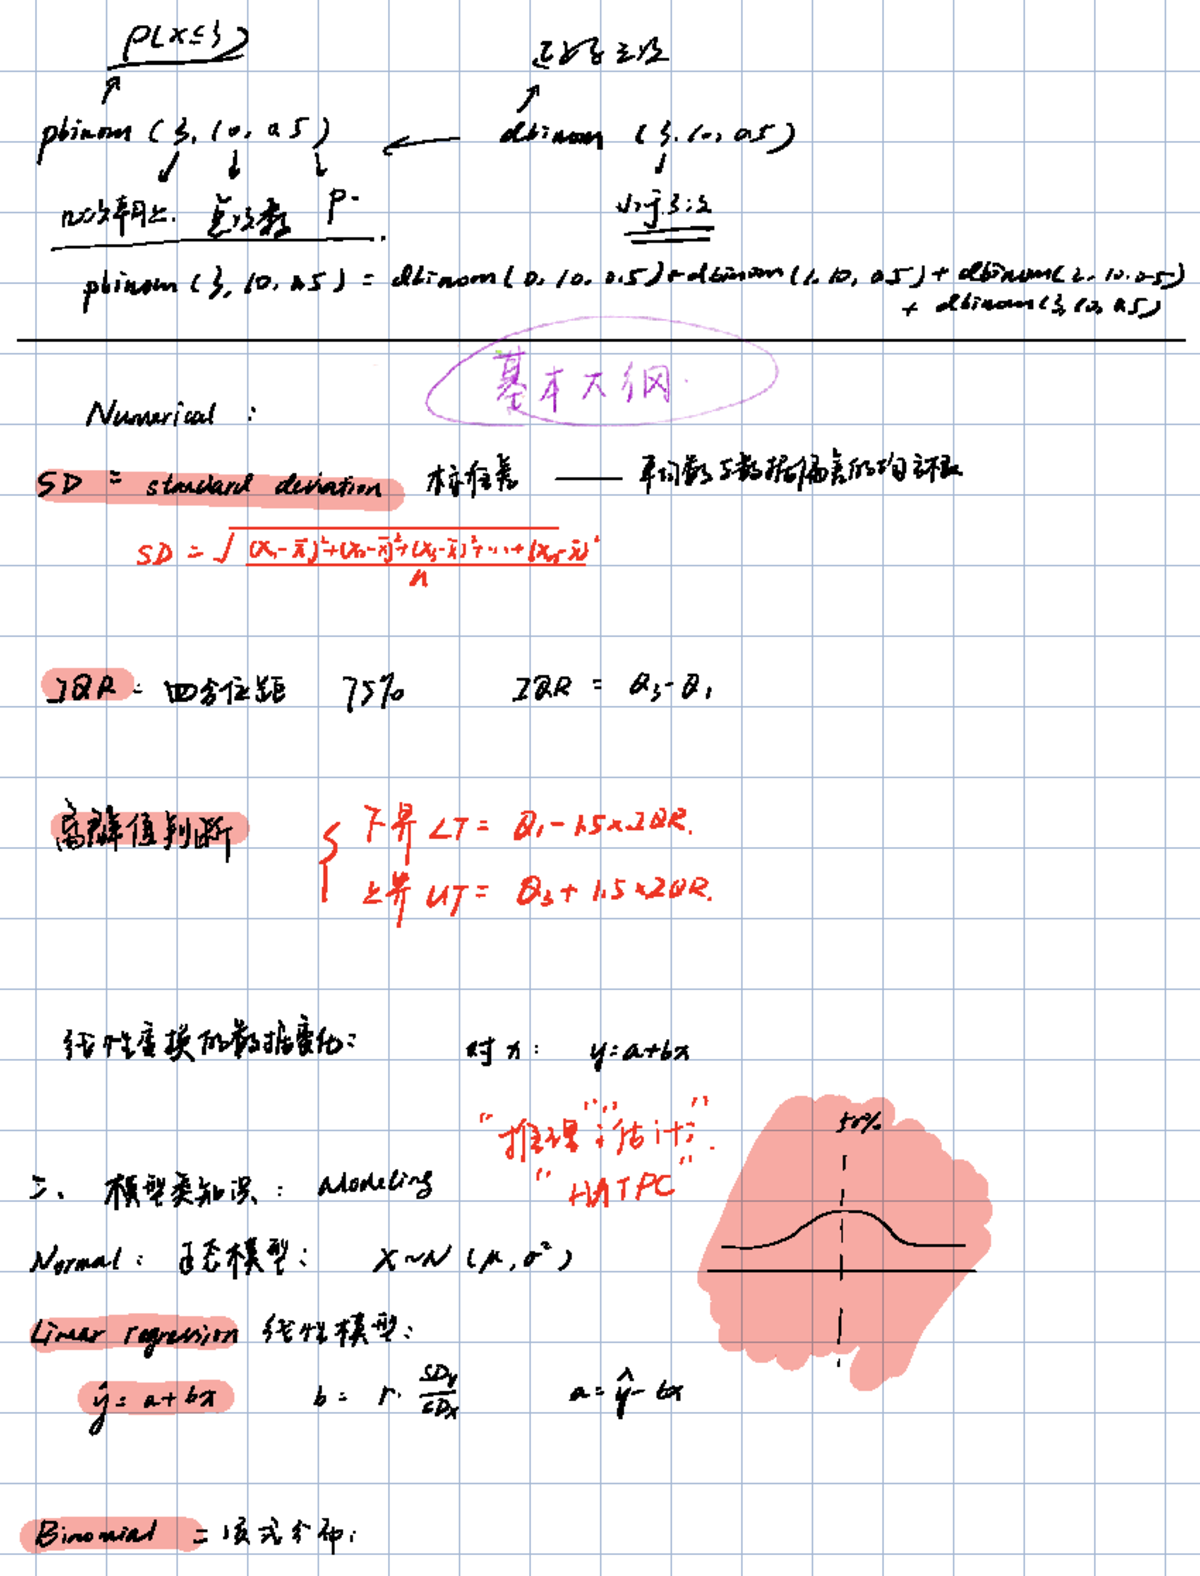 P(X≤3)
正好是三次
pbinom (3, 10, 0.5)
dbinom (3, 10, 0.5)
n次朝上. 总次数 P.
pbinom (3, 10, 0.5) = dbinom(0, 10, 0.5)+dbinom(1, 10, 0.5) + dbinom(2, 10, 0.5)
+ dbinom(3, 10, 0.5)
基本大纲.
Numerical :
SD = standard deviation 标准差 —— 平均数与数据偏差的均方根
SD = √((x₁-x̄)²+(x₂-x̄)²+(x₃-x̄)²+...+(xₙ-x̄)²/n)
IQR : 四分位距 75% IQR = Q₃-Q₁
离群值判断
下界 LT = Q₁-1.5×IQR.
上界 UT = Q₃+1.5×IQR.
线性变换的数据变化: 对x: y=a+bx
"推理";"估计";
"HATPC"
50%
二、模型类知识: Modeling
Normal: 正态模型: X~N(μ,σ²)
Linear regression 线性模型:
ŷ= a+bx b= r·SDy/SDx a=ŷ-bx
Binomial 二项式分布: